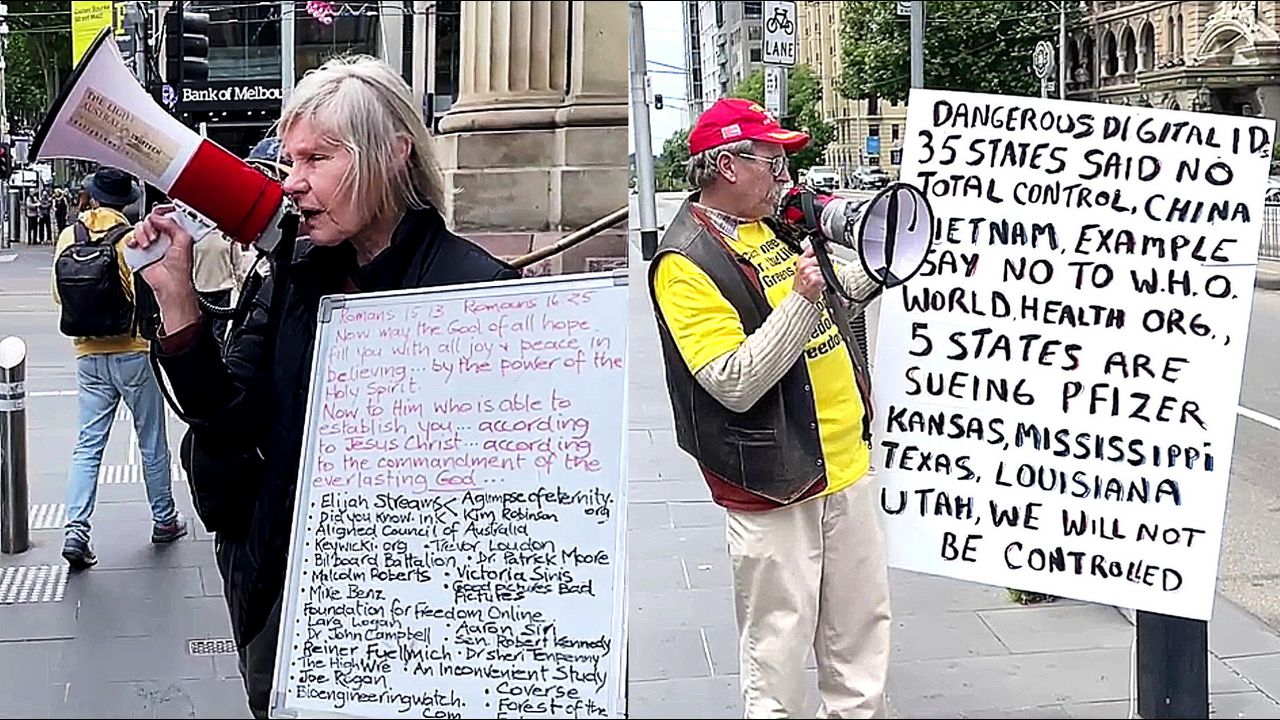 Bank of Melbou
THE LIGHT
AUSTRALIA
Romans 15:13 Romans 16:25
Now may the God of all hope
fill you with all joy & peace in
believing... by the power of the
Holy Spirit.
Now to Him who is able to
establish you... according
to Jesus Christ... according
to the commandment of the
everlasting God...
• Elijah Streams < Aglimpseofeternity.
org
• Did you know. ink • Kim Robinson
• Aligned Council of Australia
• Keywicki.org • Trevor Loudon
• Billboard Battalion • Dr. Patrick Moore
• Malcolm Roberts • Victoria Siris
• Mike Benz • Good pictures Bad
Pictures
Foundation for Freedom Online
• Lara Logan • Aaron Siri
• Dr. John Campbell • Sen. Robert Kennedy
• Reiner Fuellmich • Dr Sheri Tenpenny
• The HighWire • An Inconvenient Study
• Joe Rogan
• Coverse
• Bioengineeringwatch.
com
• Forest of the
LANE
DANGEROUS DIGITAL IDs
35 STATES SAID NO
TOTAL CONTROL, CHINA
IETNAM, EXAMPLE
SAY NO TO W.H.O.
WORLD, HEALTH ORG.,
5 STATES ARE
SUEING PFIZER
KANSAS, MISSISSIPPI
TEXAS, LOUISIANA
UTAH, WE WILL NOT
BE CONTROLLED